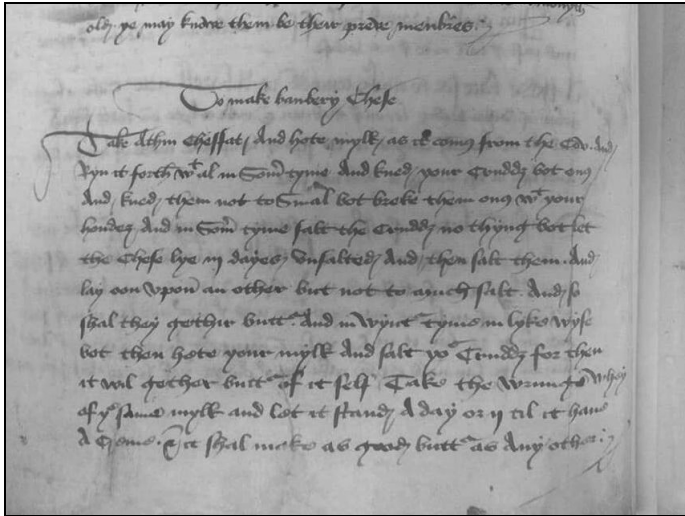 olh ye may knowe them be their preve menbres.
To make banbery Chese
Take A thin Cheffat, And hote mylk, as it comys from the Cow. And
Ryn it forth wt al in Som̄ tyme. And kned your Cruddz bot onys
And kned them not to Smal bot broke them onys wt your
hondez And in Som̄ tyme salt the Cruddz no thyng bot let
the Chese lye iij dayes Unsalted And then salt them. And
lay oon Upon an other but not to much salt. And so
shal they gethir butter. And in Wynter tyme in lyke wyse
bot then hote your mylk And salt yor Cruddz for then
it wil gether butter of it self. Take the Wrunge Whey
of ye same mylk and let it stand A day or ij til it have
A Creme. & it shal make as good butter as Any other.